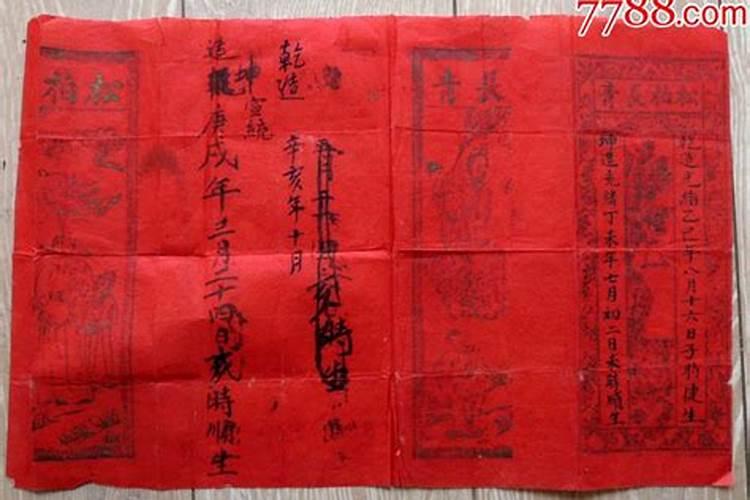 7788.com
松柏長青
乾造光緒乙巳年八月十六日子時健生
坤造光緒丁未年七月初二日未時順生
長青
時生
乾造
宣統
辛亥年十月
坤
造
庚戌年三月二十四日
時順生
松柏